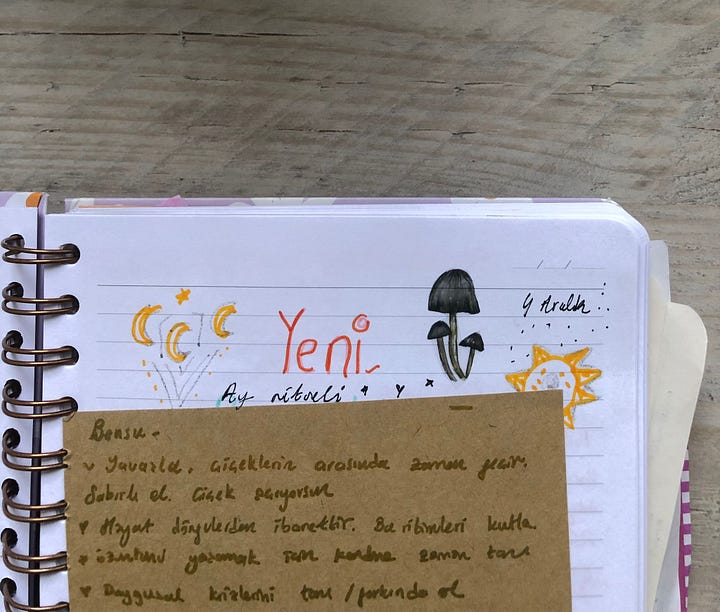 Yeni
4 Aralık
Ay ritüeli
Bensu -
Yavaşla, çiçeklerin arasında zaman geçir.
Sabırlı ol. Çiçek açıyorsun
Hayat döngülerden ibarettir. Bu ritimleri kutla.
yaşamak için kendine zaman tanı
Duygusal krizlerini tanı / farkında ol